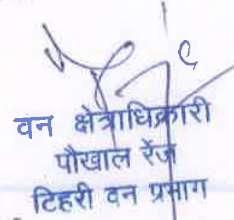 वन क्षेत्राधिकारी
पौखाल रेंज
टिहरी वन प्रभाग